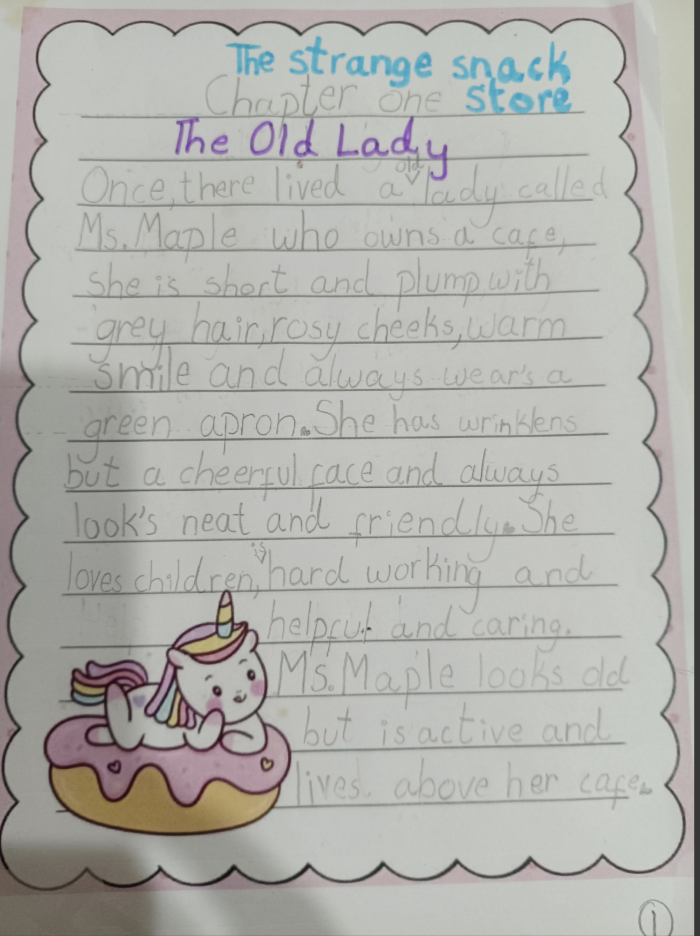 The strange snack
Chapter one store
The Old Lady
Once, there lived a old lady called
Ms. Maple who owns a cafe,
she is short and plump, with
grey hair, rosy cheeks, warm
smile and always wear's a
green apron. She has wrinklens
but a cheerful face and always
look's neat and friendly. She
loves children, is hard working and
helpful and caring.
Ms. Maple looks old
but is active and
lives above her cafe.
1